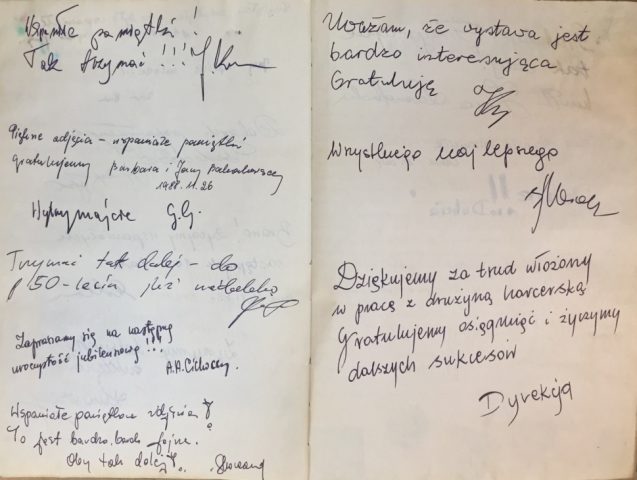 Wspaniałe pamiątki!
Tak trzymać!!!
Piękne zdjęcia – wspaniałe pamiątki
gratulujemy Barbara i Jerzy
1988.11.26
Wytrzymajcie G.G.
Trzymać tak dalej – do
50-lecia już niedaleko
Zapraszamy się na następną
uroczystość jubileuszową!!!
A.A.Cichoccy
Wspaniałe pamiątkowe zdjęcia!
To jest bardzo, bardzo fajne.
Oby tak dalej!
Uważam, że wystawa jest
bardzo interesująca
Gratuluję
Wszystkiego najlepszego
Dziękujemy za trud włożony
w pracę z drużyną harcerską
Gratulujemy osiągnięć i życzymy
dalszych sukcesów
Dyrekcja